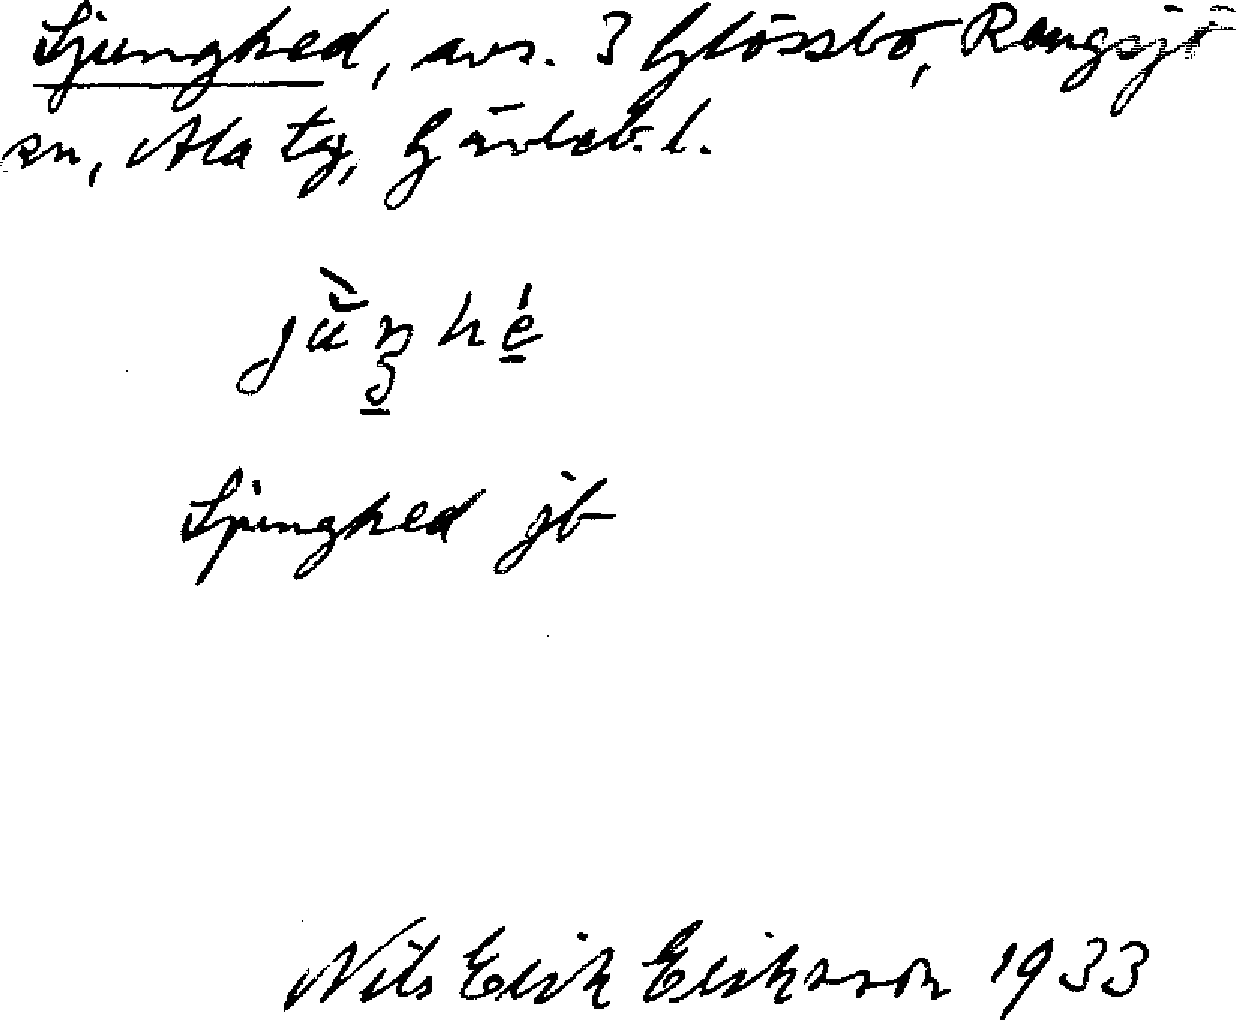 Ljunghed, avs. 3 Glössbo, Rengsjö
sn, Ala tg, Gävleb. l.
Ljunghed jb
Nils Erik Eriksson 1933